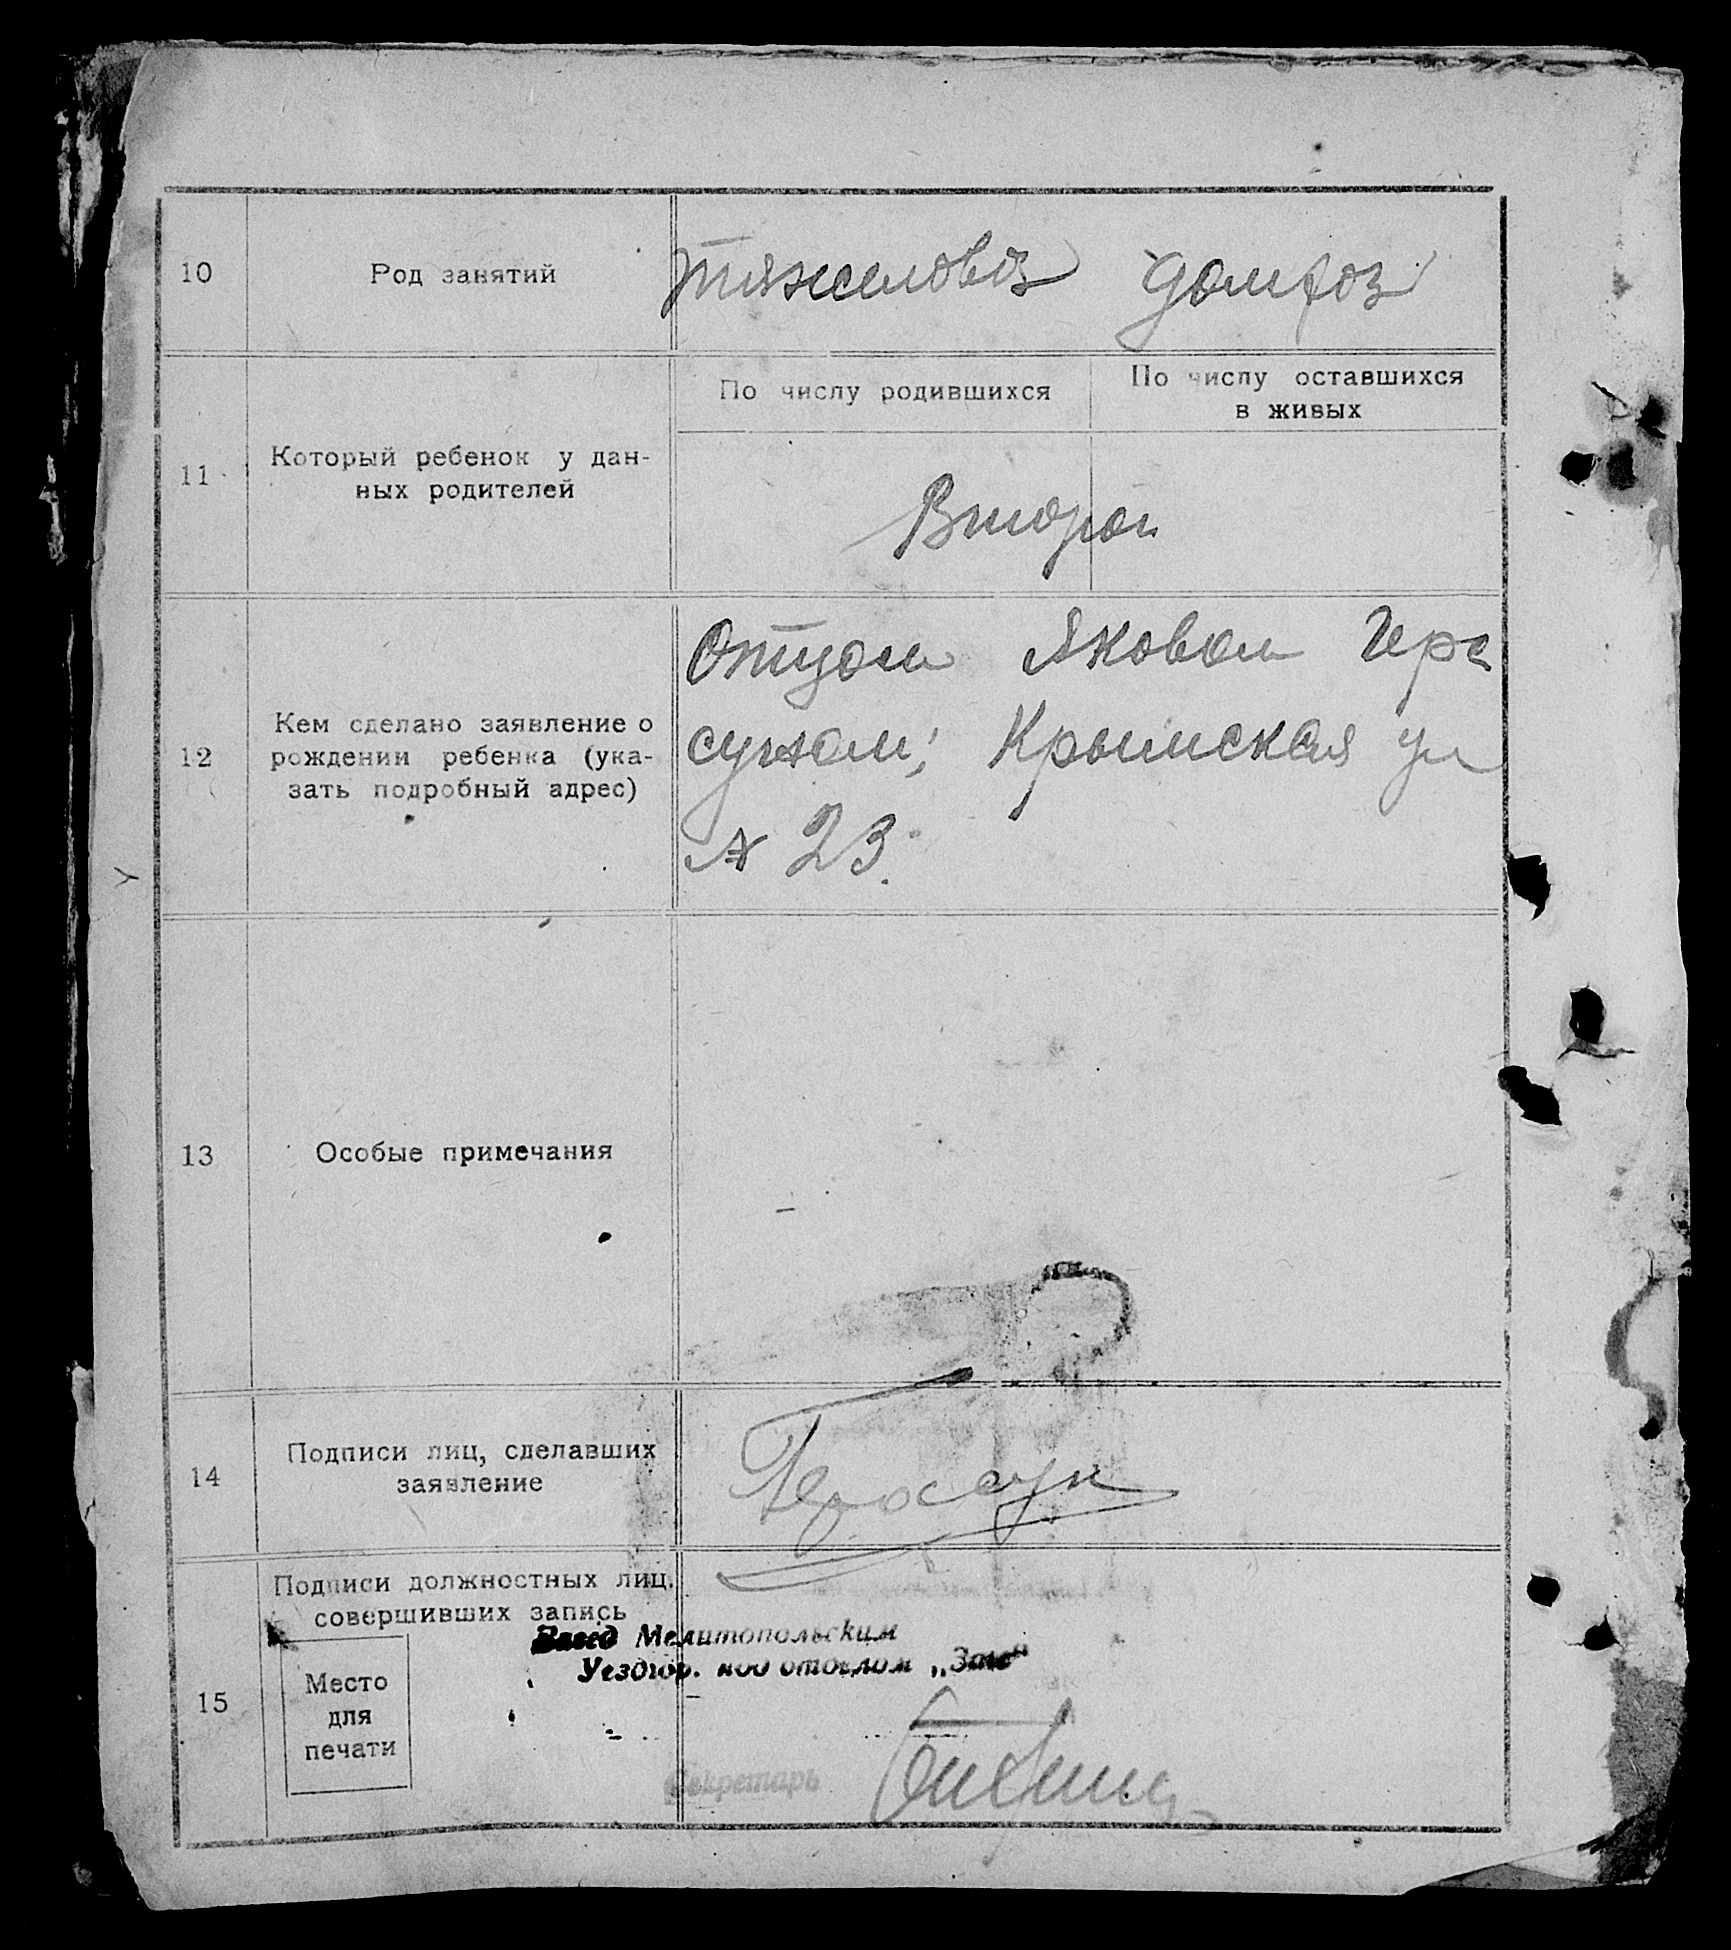 10
Род занятий
тяжеловоз
домхоз
11
Который ребенок у дан-
ных родителей
По числу родившихся
По числу оставшихся
в живых
Второй
12
Кем сделано заявление о
рождении ребенка (ука-
зать подробный адрес)
Отцом Яковом Гера
суком; Крымская ул
№ 23.
13
Особые примечания
14
Подписи лиц, сделавших
заявление
Герасук
15
Подписи должностных лиц,
совершивших запись
Место
для
печати
Завед Мелитопольским
Уездгор. под отделом „Загс"
Секретарь